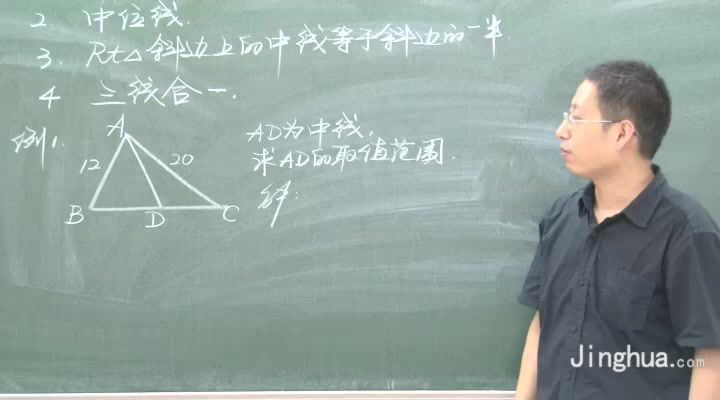 2. 中位线.
3. Rt△斜边上的中线等于斜边的一半.
4. 三线合一.
例1.
A
12
20
B
D
C
AD为中线,
求AD的取值范围.
解:
Jinghua.com